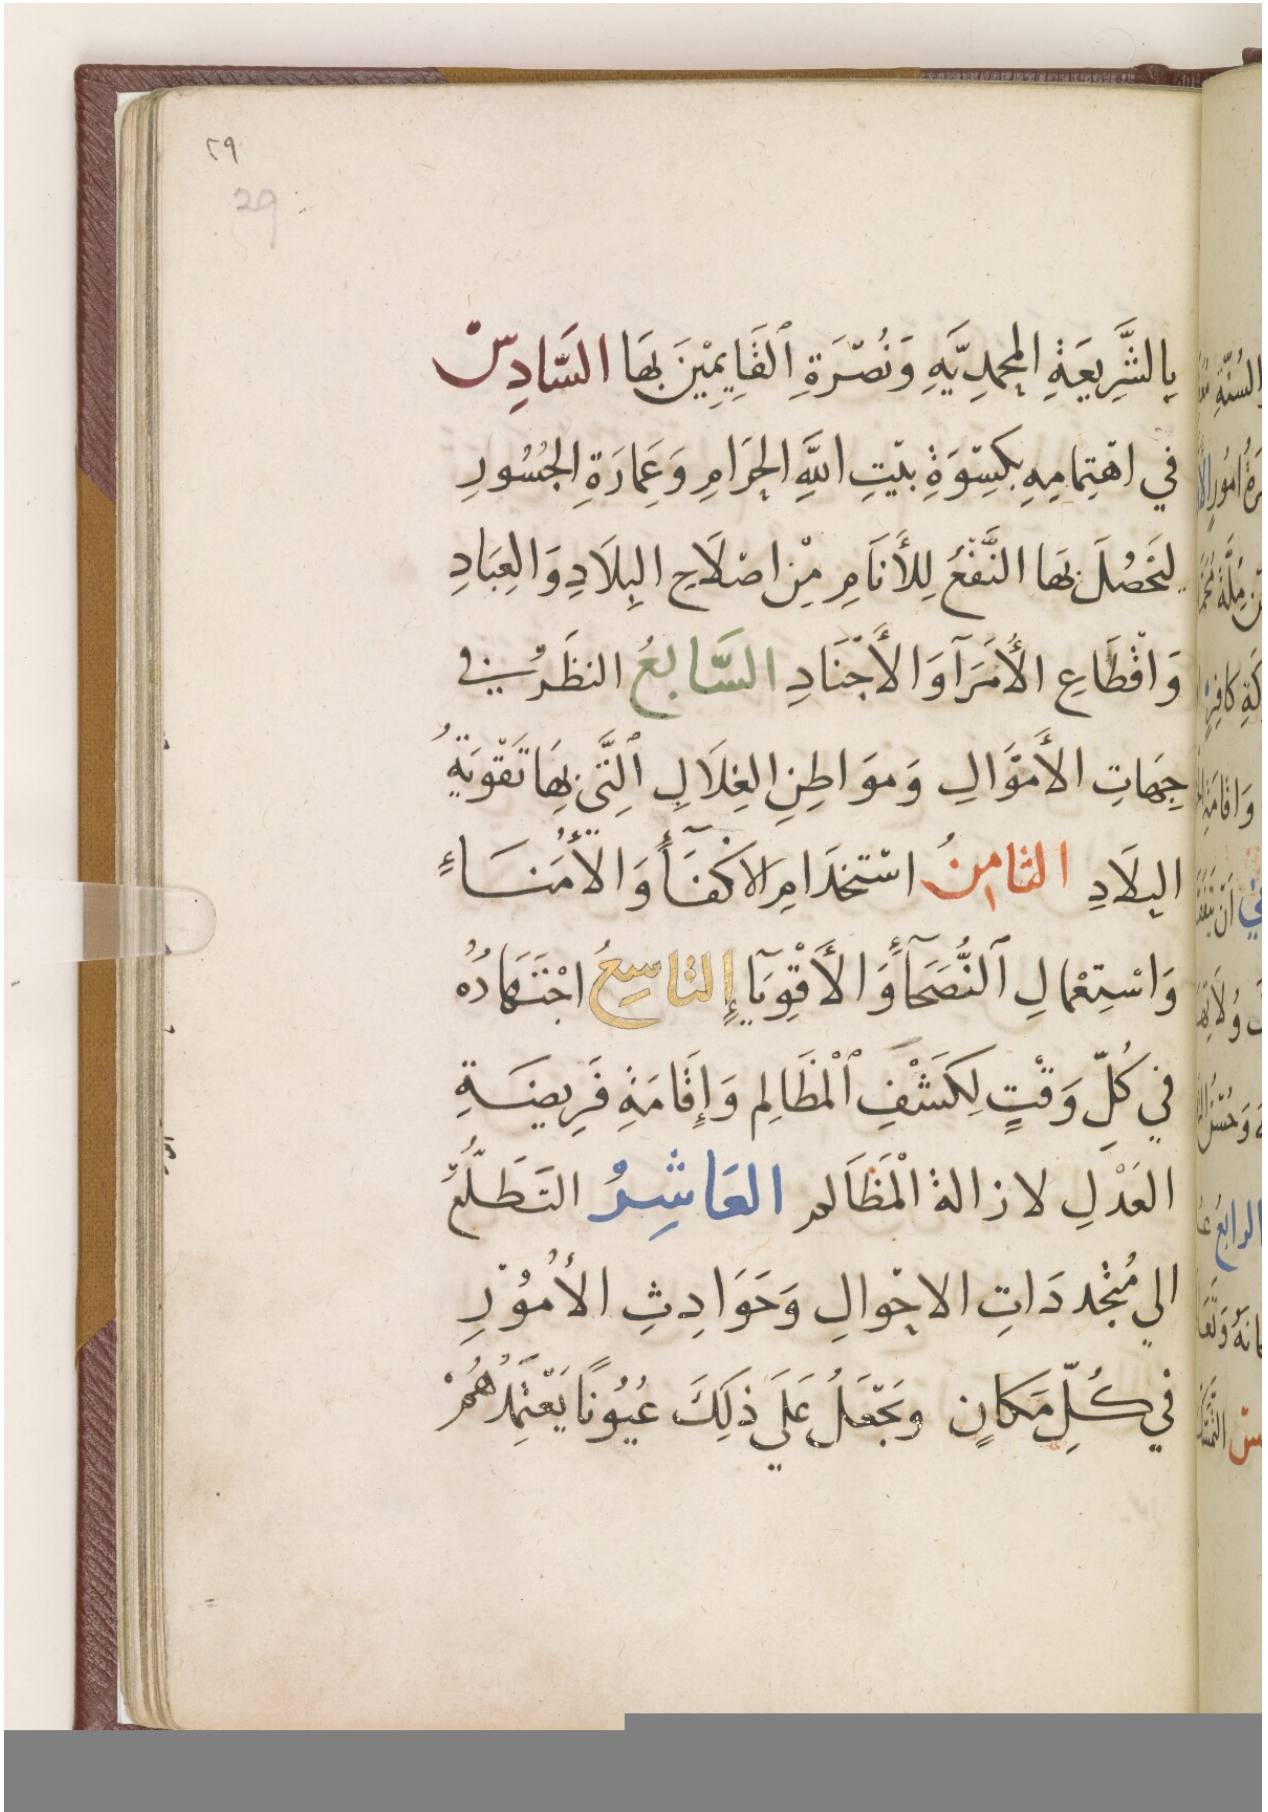 ٢٩
29
بِالشَّرِيعَةِ المحمدِيَّهِ وَنُصْرَةِ ٱلقَايِمِيْنَ بِهَا السَّادِسْ
في اهْتِمامِهِ بكِسْوَةِ بيْتِ اللَّهِ الحَرَامِ وَعِمارَةِ الجُسُورِ
لتَحصُلَ بهَا النَّفْعُ لِلأَنَامِ مِنْ اصْلَاحِ البِلَادِ وَالعِبَادِ
وَاقْطَاعِ الأُمَرَآ وَالأَجْنَادِ السَّابعُ النظَرُ في
جِهَاتِ الأَمْوَالِ وَموَاطِنِ الغِلَالِ ٱلتَّى بِهَا تَقْوِيَةُ
البِلَادِ الثامنُ اسْتخدَامِ الاكْفَآءِ وَالأُمَنسَاءِ
وَاسْتِعْمالِ ٱلنُّصَحَآءِ وَالأَقْوِيَآءِ التاسِعُ اجْتهَادُه
في كُلِّ وَقْتٍ لِكَشْفِ ٱلْمَظَالِم وَإِقَامَةِ فَرِيضَةِ
العَدْلِ لازالة الْمَظَالم العَاشِرُ التَطَلُّعُ
الي مُتجْددَاتِ الاحْوالِ وَحَوَادِثِ الأُمُوْرِ
في كُلِّ مَكانٍ وتَجْعَلُ عَلَي ذلِكَ عُيُونًا يَعْتَمِدُهُمْ